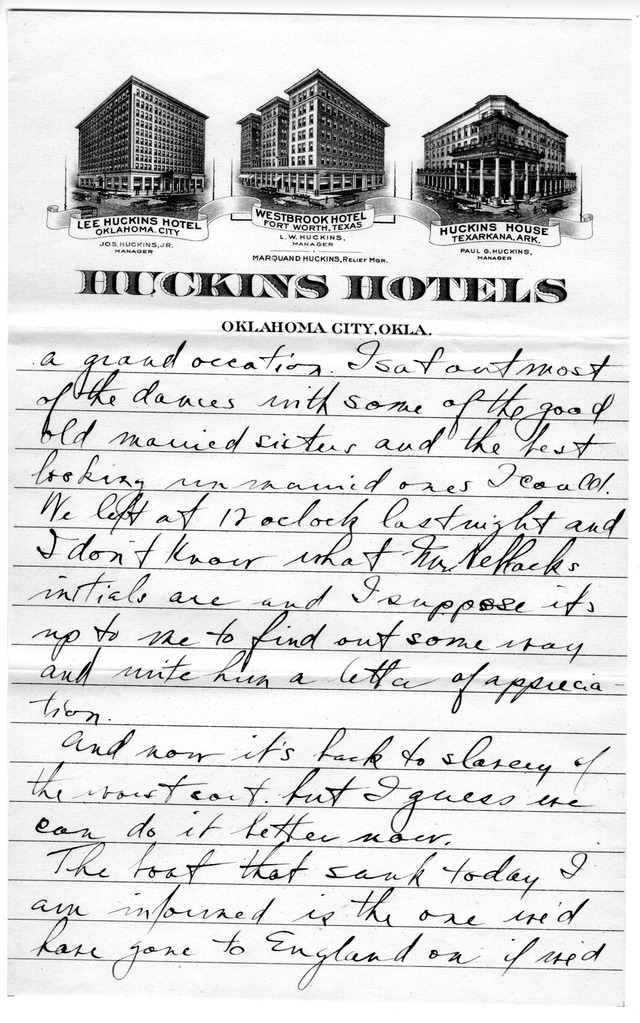 LEE HUCKINS HOTEL
OKLAHOMA CITY
JOS. HUCKINS, JR.
MANAGER
WESTBROOK HOTEL
FORT WORTH, TEXAS
L. W. HUCKINS,
MANAGER
MARQUAND HUCKINS, RELIEF MGR.
HUCKINS HOUSE
TEXARKANA, ARK.
PAUL G. HUCKINS,
MANAGER
HUCKINS HOTELS
OKLAHOMA CITY, OKLA.
a grand occation. I sat out most
of the dances with some of the good
old married sisters and the best
looking unmarried ones I could.
We left at 12 oclock last night and
I don't know what Mr.
initials are and I suppose it's
up to me to find out some way
and write him a letter of apprecia
tion.
And now it's back to slavery of
the worst sort. but I guess we
can do it better now.
The boat that sank today I
am informed is the one we'd
have gone to England on if we'd